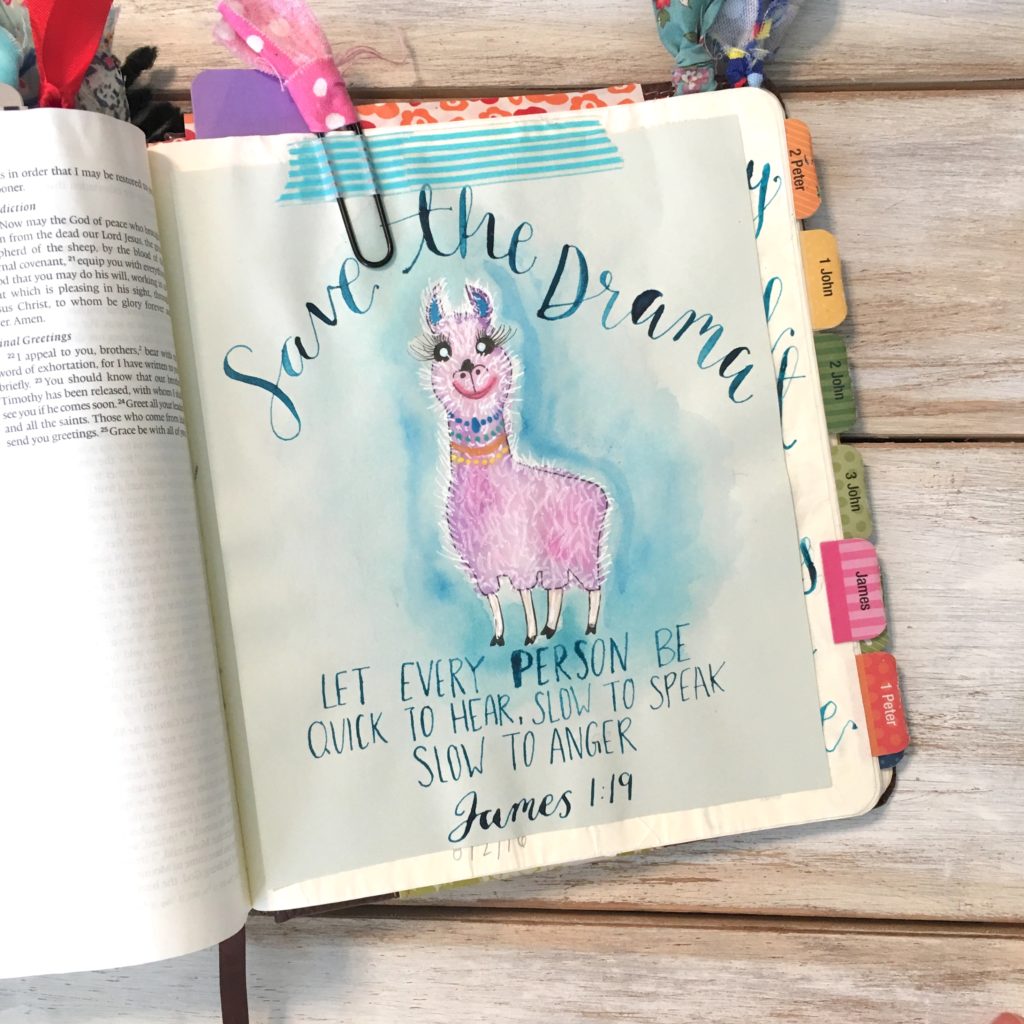 s in order that I may be restored to
ooner.
diction
Now may the God of peace who
n from the dead our Lord Jesus, the
pherd of the sheep, by the blood of
nal covenant, 21 equip you with everything
od that you may do his will, working in
t which is pleasing in his sight, through
sus Christ, to whom be glory forever
er. Amen.
nal Greetings
22 I appeal to you, brothers,2 bear with
word of exhortation, for I have written to
briefly. 23 You should know that our
Timothy has been released, with whom I
see you if he comes soon. 24 Greet all your
and all the saints. Those who come from
send you greetings. 25 Grace be with all of
Save the Drama
LET EVERY PERSON BE
QUICK TO HEAR, SLOW TO SPEAK
SLOW TO ANGER
James 1:19
2 Peter
1 John
2 John
3 John
James
1 Peter